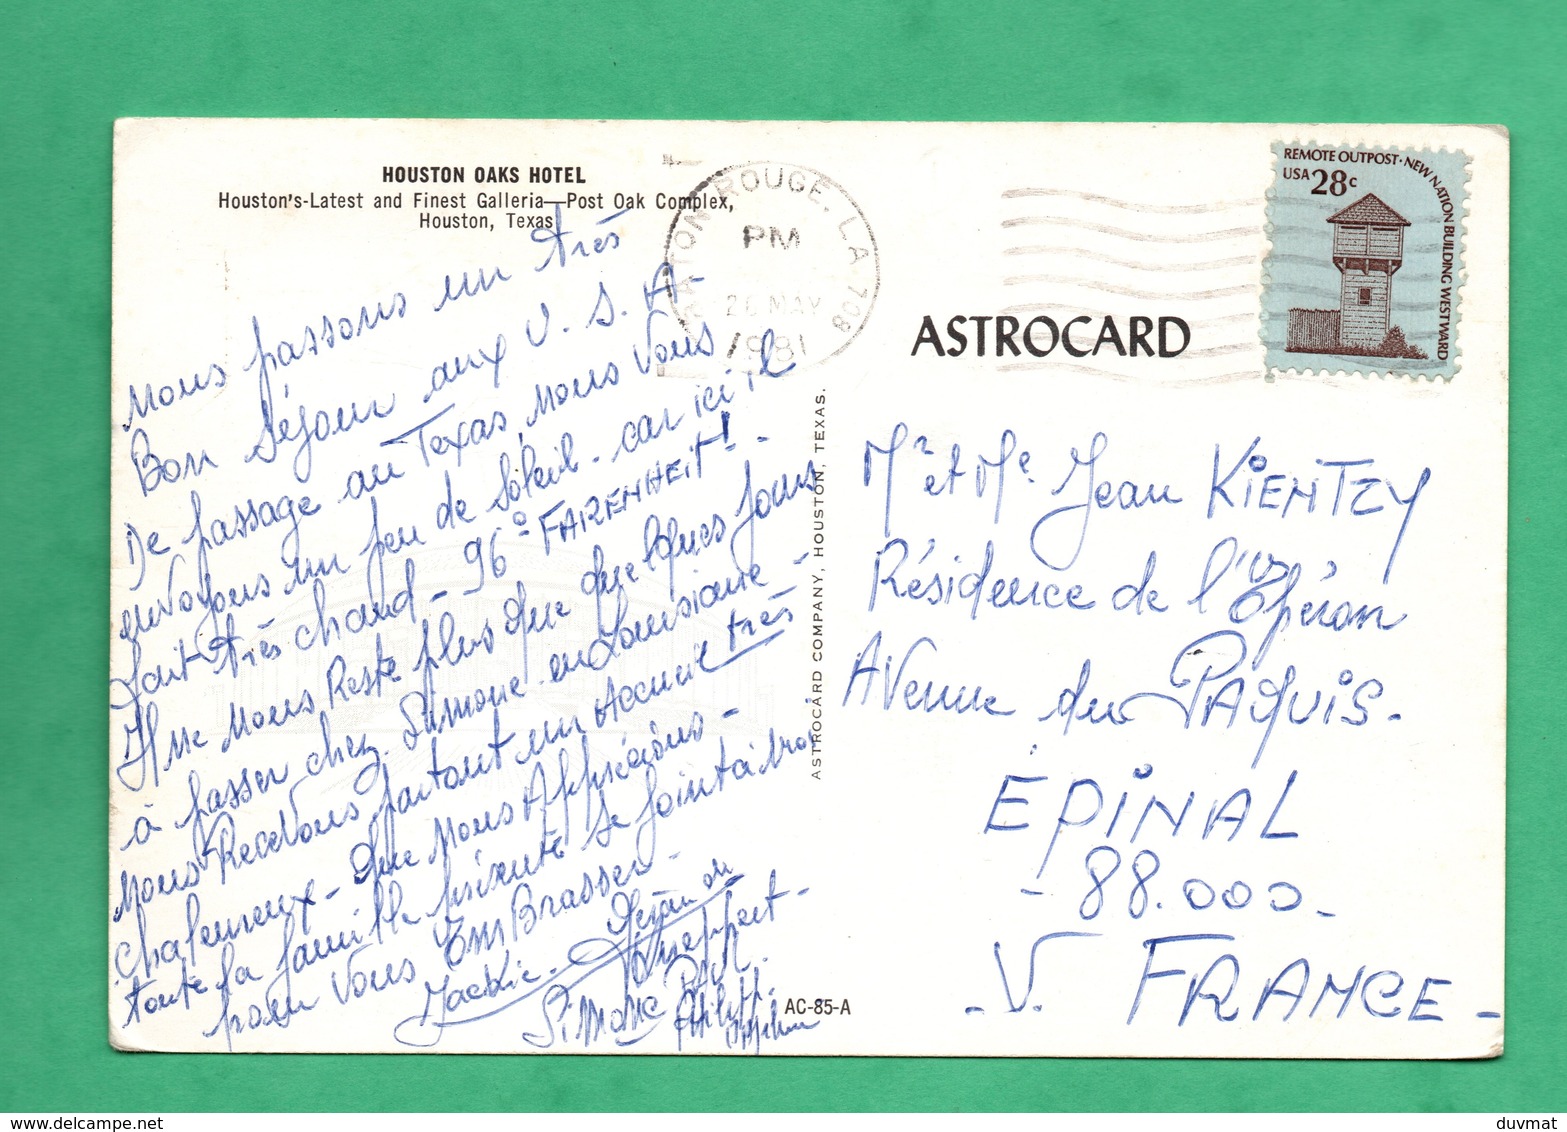 HOUSTON OAKS HOTEL
Houston's-Latest and Finest Galleria—Post Oak Complex,
Houston, Texas
Nous passons un très
Bon séjour aux U.S.A-
De passage au Texas, nous vous
envoyons un peu de soleil. car ici il
fait très chaud - 96° FARENHEIT! -
Il ne nous Reste plus que quelques jours
à passer chez Simone en Louisiane -
Nous Recevons partout un Accueil très
chaleureux - que nous Apprécions -
toute la famille présente se joint à moi
pour vous EmBrasser -
Jackie.
Simone
BATON ROUGE, LA 708
PM
26 MAY
1981
ASTROCARD
REMOTE OUTPOST · NEW NATION BUILDING WESTWARD
USA 28c
ASTROCARD COMPANY, HOUSTON, TEXAS.
Mr et Me Jean KIENTZY
Résidence de l'Opéron
Avenue du PAQUIS.
ÉPINAL
- 88.000 -
- V. FRANCE -
AC-85-A
duvmat